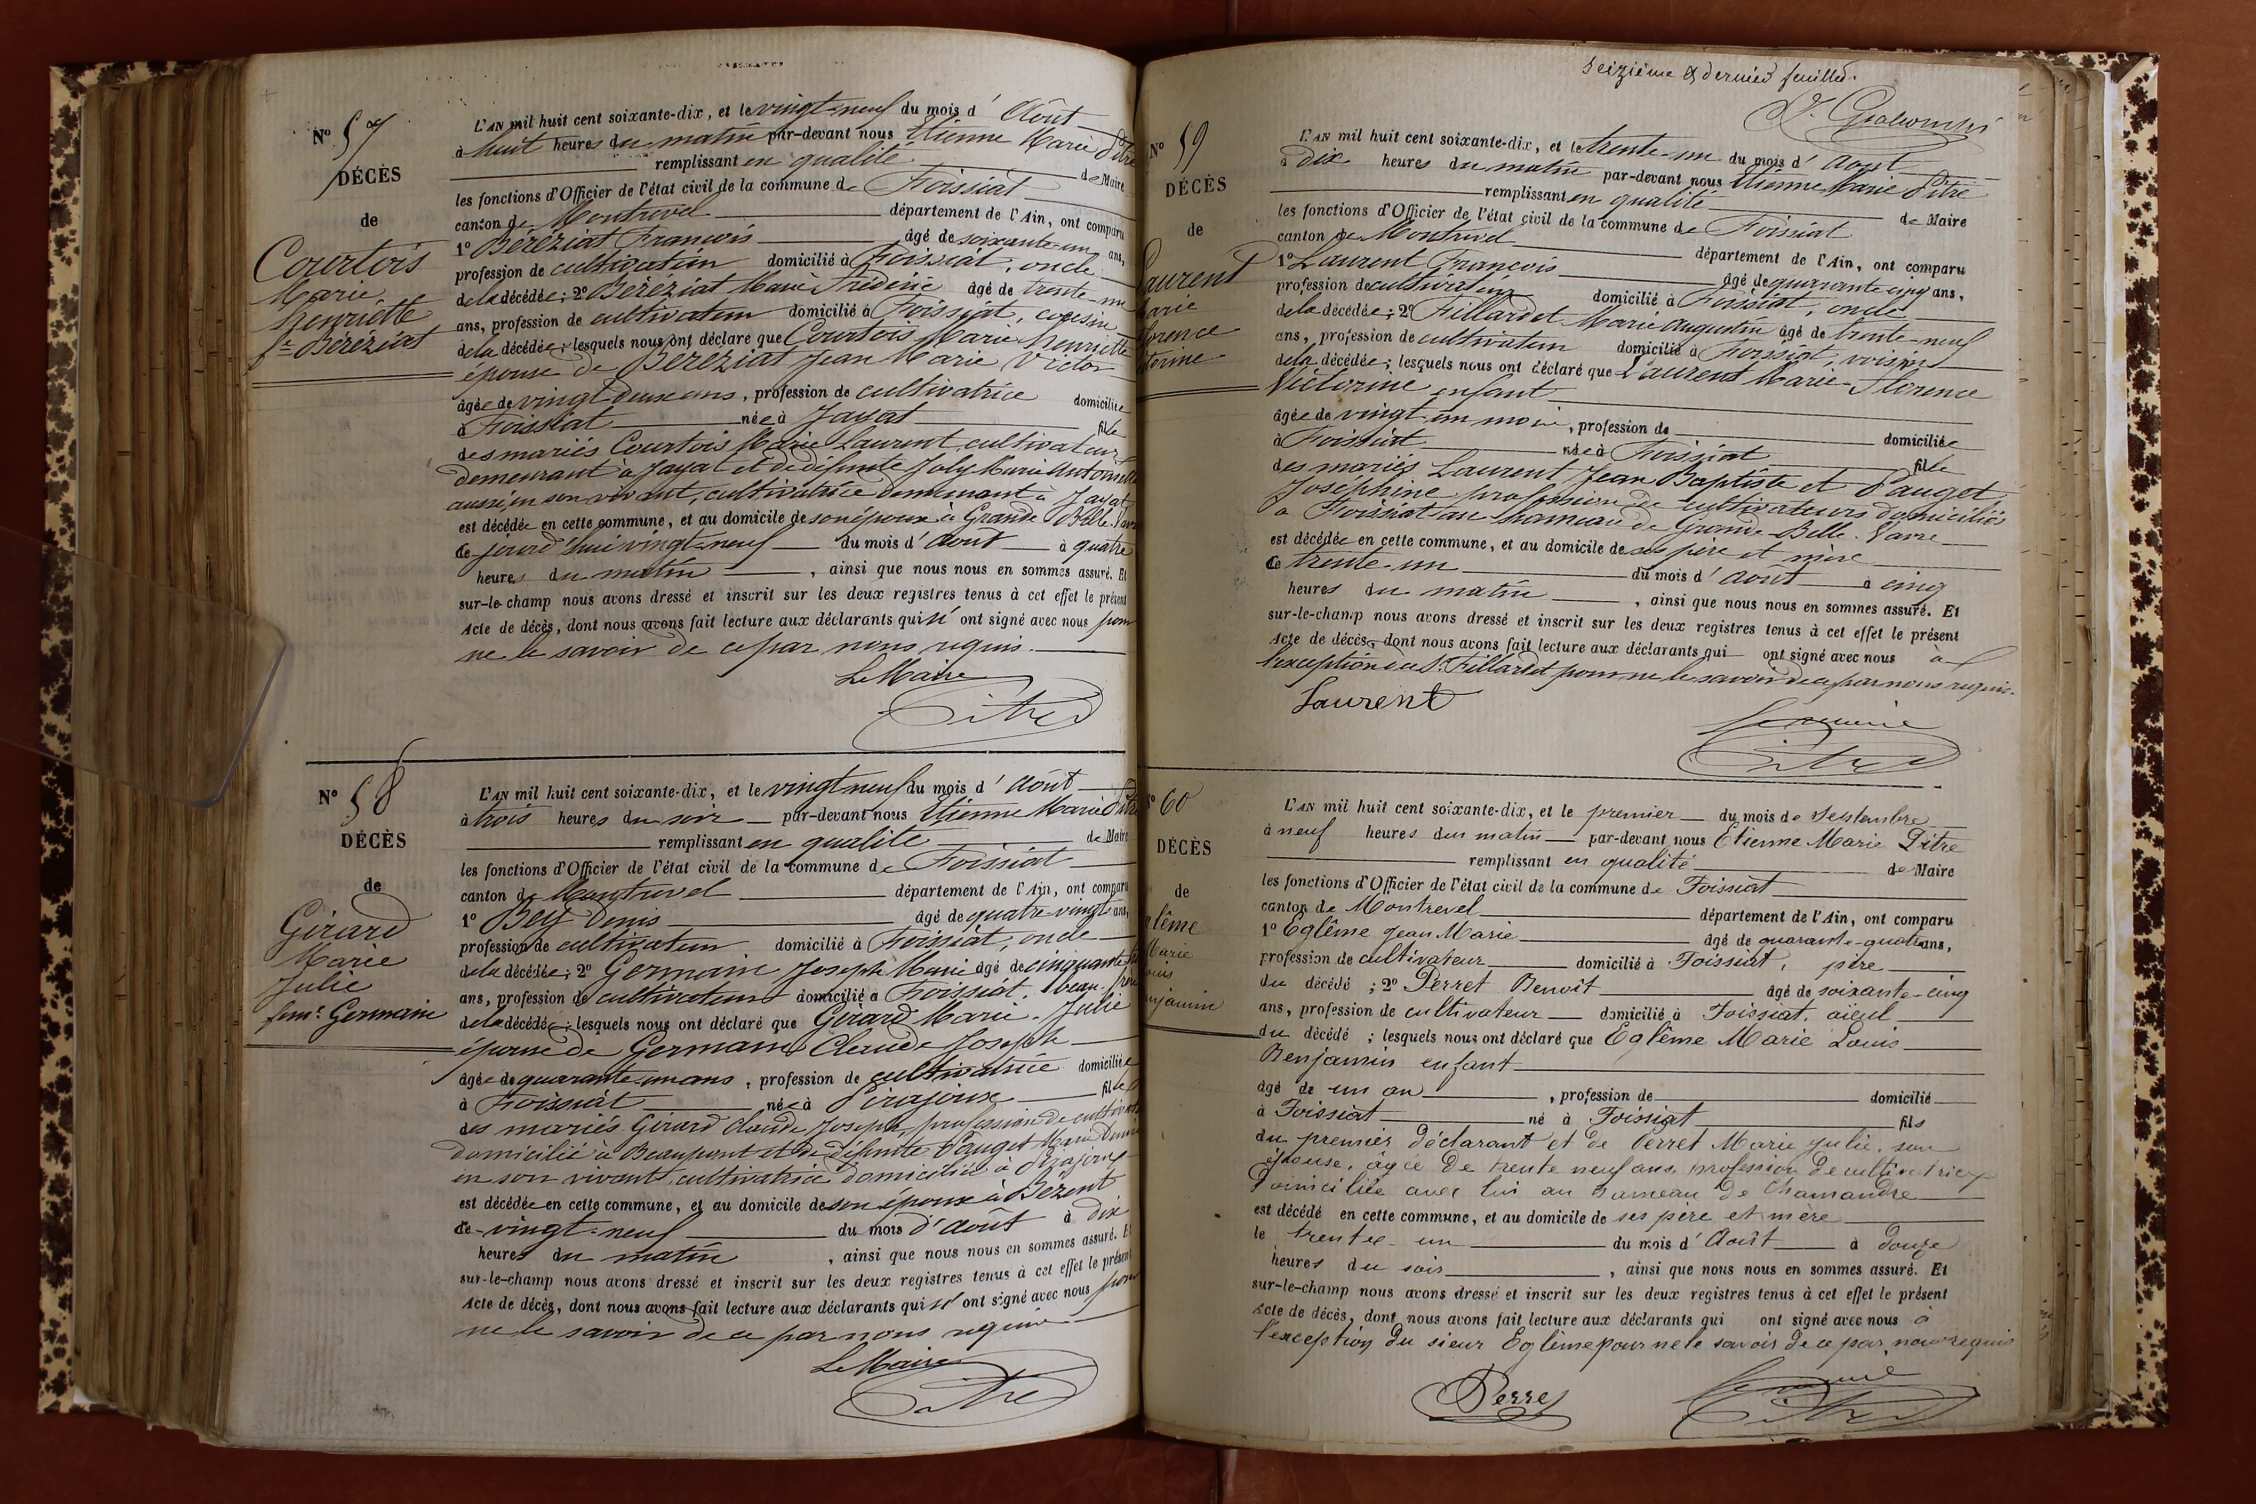 N° 57
DÉCÈS
de
Courtois
Marie
henriette
fe Béréziat
L'AN mil huit cent soixante-dix, et le vingt-neuf du mois d' Août
à huit heures du matin par-devant nous Etienne Marie Pitre
remplissant en qualité de Maire
les fonctions d'Officier de l'état civil de la commune de Foissiat
canton de Montrevel département de l'Ain, ont comparu
1° Béréziat François âgé de soixante-un ans,
profession de cultivateur domicilié à Foissiat, oncle
de la décédée; 2° Béréziat Marie Frédéric âgé de trente-un
ans, profession de cultivateur domicilié à Foissiat, cousin
de la décédée; lesquels nous ont déclaré que Courtois Marie henriette
épouse de Béréziat Jean Marie Victor
âgée de vingt deux ans, profession de cultivatrice domiciliée
à Foissiat née à Jayat fille
des mariés Courtois Marie Laurent cultivateur
demeurant à Jayat et de défunte Joly Marie Antoinette
aussi en son vivant, cultivatrice demeurant à Jayat
est décédée en cette commune, et au domicile de son époux à Grande Belle-Vavre
ce jourd'hui vingt-neuf du mois d' Août à quatre
heures du matin, ainsi que nous nous en sommes assuré. Et
sur-le-champ nous avons dressé et inscrit sur les deux registres tenus à cet effet le présent
Acte de décès, dont nous avons fait lecture aux déclarants qui n' ont signé avec nous pour
ne le savoir de ce par nous requis.
Le Maire
Pitre
N° 58
DÉCÈS
de
Girard
Marie
Julie
fem: Germain
L'AN mil huit cent soixante-dix, et le vingt neuf du mois d' Août
à trois heures du soir par-devant nous Etienne Marie Pitre
remplissant en qualité de Maire
les fonctions d'Officier de l'état civil de la commune de Foissiat
canton de Montrevel département de l'Ain, ont comparu
1° Bey Denis âgé de quatre-vingts ans,
profession de cultivateur domicilié à Foissiat, oncle
de la décédée; 2° Germain Joseph Marie âgé de cinquante
ans, profession de cultivateur domicilié à Foissiat, beau-frère
de la décédée; lesquels nous ont déclaré que Girard Marie Julie
épouse de Germain Claude Joseph
âgée de quarante-un ans, profession de cultivatrice domiciliée
à Foissiat née à Pirajoux fille
des mariés Girard Claude Joseph, profession de cultivateur
domicilié à Beaupont et de défunte Pauget Marie
en son vivant cultivatrice domiciliée à Pirajoux
est décédée en cette commune, et au domicile de son époux à Bézent
ce vingt-neuf du mois d' Août à dix
heures du matin, ainsi que nous nous en sommes assuré. Et
sur-le-champ nous avons dressé et inscrit sur les deux registres tenus à cet effet le présent
Acte de décès, dont nous avons fait lecture aux déclarants qui n' ont signé avec nous pour
ne le savoir de ce par nous requis
Le Maire
Pitre
seizième & dernier feuillet.
N° 59
DÉCÈS
de
Laurent
Marie
Florence
Victorine
L'AN mil huit cent soixante-dix, et le trente-un du mois d' Août
à dix heures du matin par-devant nous Etienne Marie Pitre
remplissant en qualité de Maire
les fonctions d'Officier de l'état civil de la commune de Foissiat
canton de Montrevel département de l'Ain, ont comparu
1° Laurent François âgé de quarante cinq ans,
profession de cultivateur domicilié à Foissiat, oncle
de la décédée; 2° Fillardet Marie Augustin âgé de trente-neuf
ans, profession de cultivateur domicilié à Foissiat, voisin
de la décédée; lesquels nous ont déclaré que Laurent Marie-Florence
Victorine enfant
âgée de vingt-un mois, profession de domiciliée
à Foissiat née à Foissiat fille
des mariés Laurent Jean Baptiste et Pauget
Joséphine profession de cultivateurs domiciliés
à Foissiat au hameau de Grande-Belle-Vavre
est décédée en cette commune, et au domicile de ses père et mère
ce trente-un du mois d' Août à cinq
heures du matin, ainsi que nous nous en sommes assuré. Et
sur-le-champ nous avons dressé et inscrit sur les deux registres tenus à cet effet le présent
Acte de décès, dont nous avons fait lecture aux déclarants qui ont signé avec nous à
l'exception du S. Fillardet pour ne le savoir de ce par nous requis.
Laurent
Le maire
Pitre
N° 60
DÉCÈS
de
Eglême
Marie
Louis
Benjamin
L'AN mil huit cent soixante-dix, et le premier du mois de Septembre
à neuf heures du matin par-devant nous Etienne Marie Pitre
remplissant en qualité de Maire
les fonctions d'Officier de l'état civil de la commune de Foissiat
canton de Montrevel département de l'Ain, ont comparu
1° Eglême Jean Marie âgé de quarante-quatre ans,
profession de cultivateur domicilié à Foissiat, père
du décédé; 2° Perret Benoît âgé de soixante-cinq
ans, profession de cultivateur domicilié à Foissiat, aïeul
du décédé; lesquels nous ont déclaré que Eglême Marie Louis
Benjamin enfant
âgé de un an, profession de domicilié
à Foissiat né à Foissiat fils
du premier déclarant et de Perret Marie Julie, son
épouse, âgée de trente neuf ans, profession de cultivatrice
domiciliée avec lui au hameau de Chamandre
est décédé en cette commune, et au domicile de ses père et mère
le trente-un du mois d' Août à douze
heures du soir, ainsi que nous nous en sommes assuré. Et
sur-le-champ nous avons dressé et inscrit sur les deux registres tenus à cet effet le présent
Acte de décès, dont nous avons fait lecture aux déclarants qui ont signé avec nous à
l'exception du sieur Eglême pour ne le savoir de ce par nous requis
Perret
Le maire
Pitre